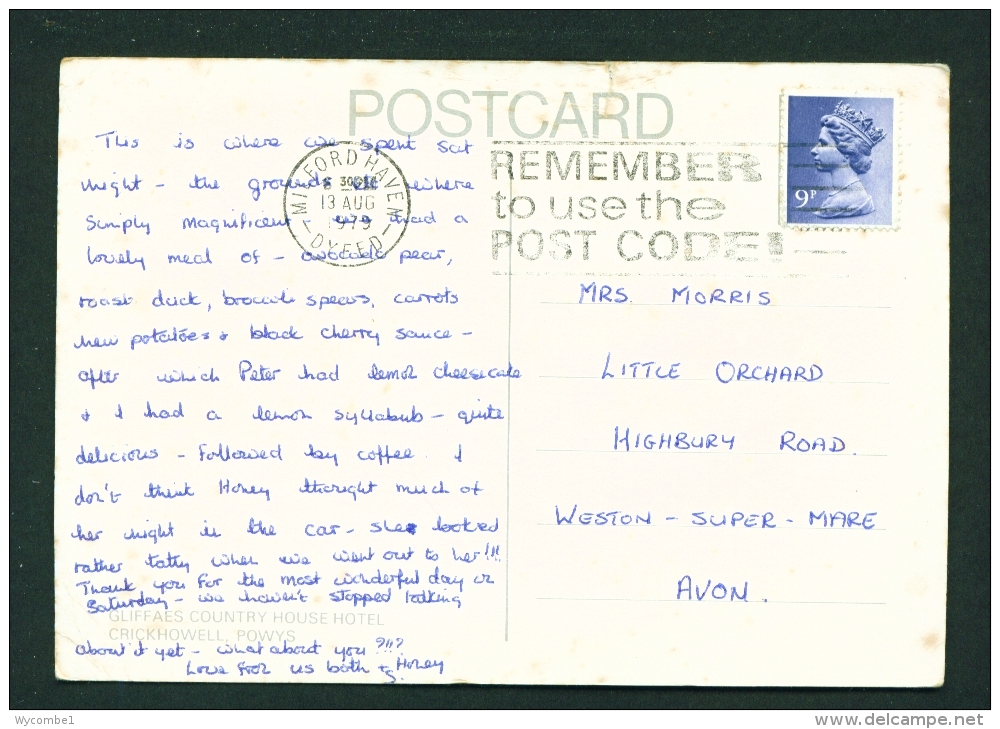 POSTCARD
This is where we spent Sat
night - the grounds were
Simply magnificent - we had a
lovely meal of - avocado pear,
roast duck, brocoli spears, carrots
new potatoes & black cherry sauce -
after which Peter had lemon cheesecake
& I had a lemon syllabub - quite
delicious - followed by coffee. I
don't think Honey thought much of
her night in the car - she looked
rather tatty when we went out to her!!!
Thank you for the most wonderful day on
Saturday - we haven't stopped talking
about it yet - what about you ?!!?
Love from us both & Honey
GLIFFAES COUNTRY HOUSE HOTEL
CRICKHOWELL, POWYS
MILFORD HAVEN
13 AUG
1979
DYFED
REMEMBER
to use the
POST CODE!
9P
MRS. MORRIS
LITTLE ORCHARD
HIGHBURY ROAD.
WESTON - SUPER - MARE
AVON.
Wycombe1
www.delcampe.net